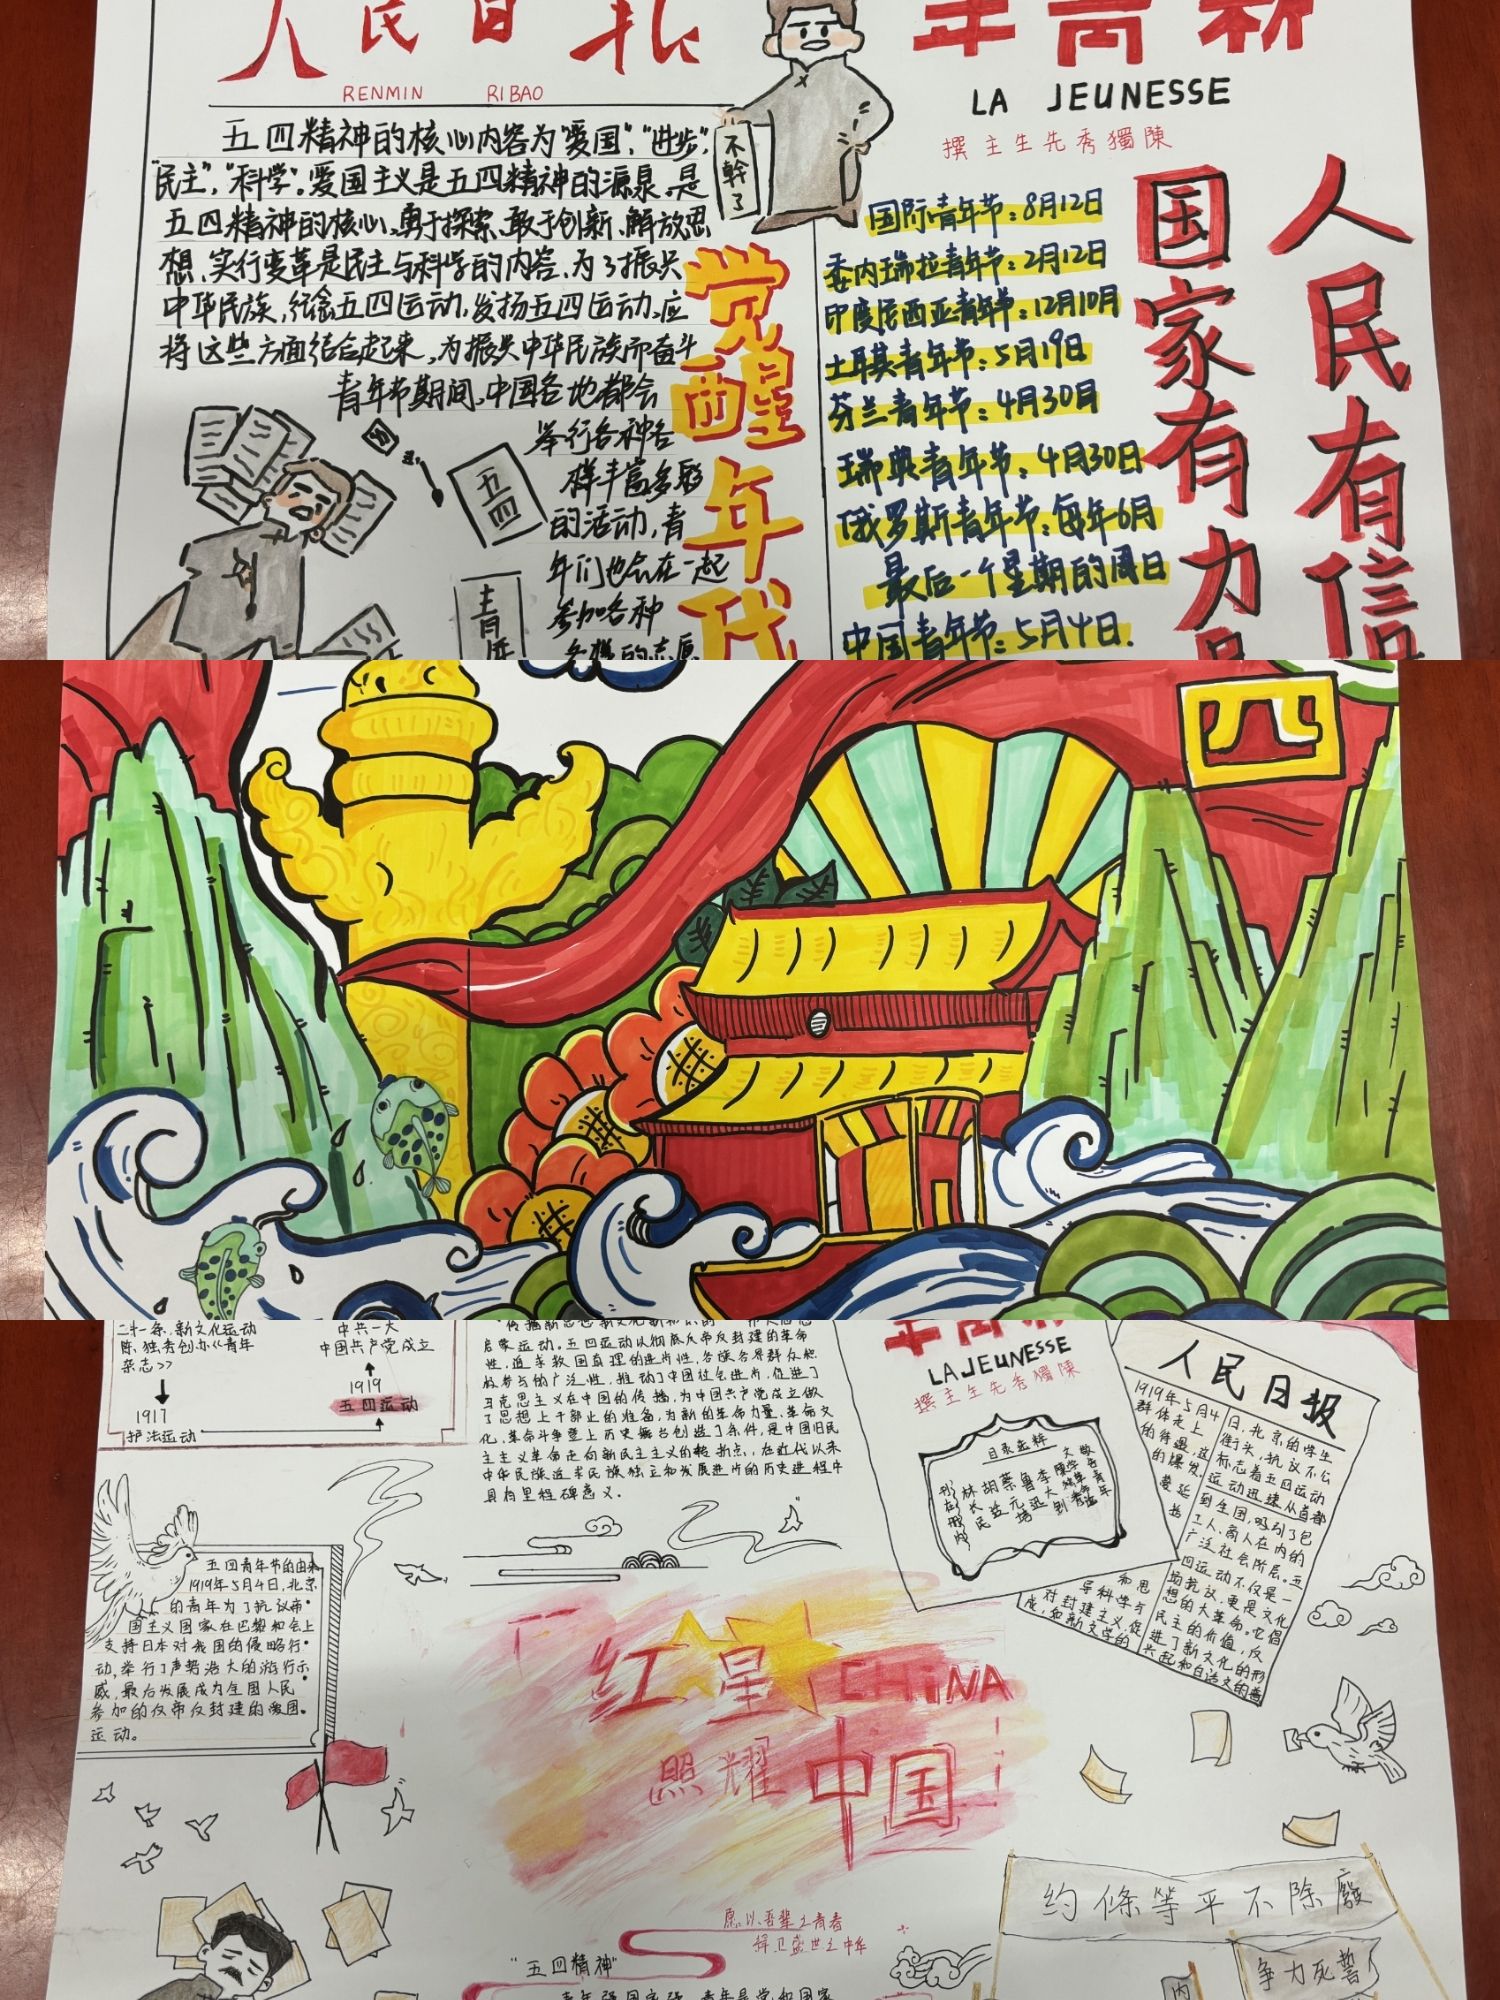 人民日报
RENMIN RIBAO
五四精神的核心内容为"爱国"，"进步"，
"民主"，"科学"。爱国主义是五四精神的源泉，是
五四精神的核心，勇于探索、敢于创新、解放思
想、实行变革是民主与科学的内容，为了振兴
中华民族，纪念五四运动，发扬五四运动，应
将这些方面结合起来，为振兴中华民族而奋斗
青年节期间，中国各地都会
举行各种各
样丰富多彩
的活动，青
年们也会在一起
参加各种
各样的志愿
觉醒年代
不幹了
五四
青年
年青新
LA JEUNESSE
撰主生先秀獨陳
国际青年节：8月12日
委内瑞拉青年节：2月12日
印度尼西亚青年节：12月10月
土耳其青年节：5月19日
芬兰青年节：4月30日
瑞典青年节：4月30日
俄罗斯青年节：每年6月
最后一个星期的周日
中国青年节：5月4日.
人民有信
国家有力
四
二十一条，新文化运动
陈独秀创办《青年
杂志>>
1917
护法运动
中共一大
中国共产党成立
1919
五四运动
启蒙运动。五四运动以彻底反帝反封建的革命
性，追求救国真理的进步性，各族各界群众积
极参与的广泛性，推动了中国社会进步，促进了
马克思主义在中国的传播，为中国共产党成立做
了思想上干部上的准备，为新的革命力量，革命文
化，革命斗争登上历史舞台创造了条件，是中国旧民
主主义革命走向新民主主义的转折点，在近代以来
中华民族追求民族独立和发展进步的历史进程中
具有里程碑意义。
LA JEUNESSE
撰主生先秀獨陳
目录函粹
人民日报
1919年5月4
日，北京的学生
群体走上
街头，抗议不公
的待遇，这
标志着五四运动
的爆发。
运动迅速从首都
蔓延
到全国，吸引了包
括
工人、商人在内的
广泛社会阶层。五
四运动不仅是一
场抗议，更是文化
和思
想的大革命。它倡
导科学与
民主的价值，反
对封建主义，促
进了新文化的形
成，如新文学的
兴起和白话文的普
五四青年节的由来
1919年5月4日，北京
的青年为了抗议帝
国主义国家在巴黎和会上
支持日本对我国的侵略行
动，举行了声势浩大的游行示
威，最后发展成为全国人民
参加的反帝反封建的爱国
运动。
红星 CHINA
照耀中国
愿以吾辈之青春
捍卫盛世之中华
"五四精神"
青年强国家强，青年是党和国家
約條等平不除廢
争力死誓
内